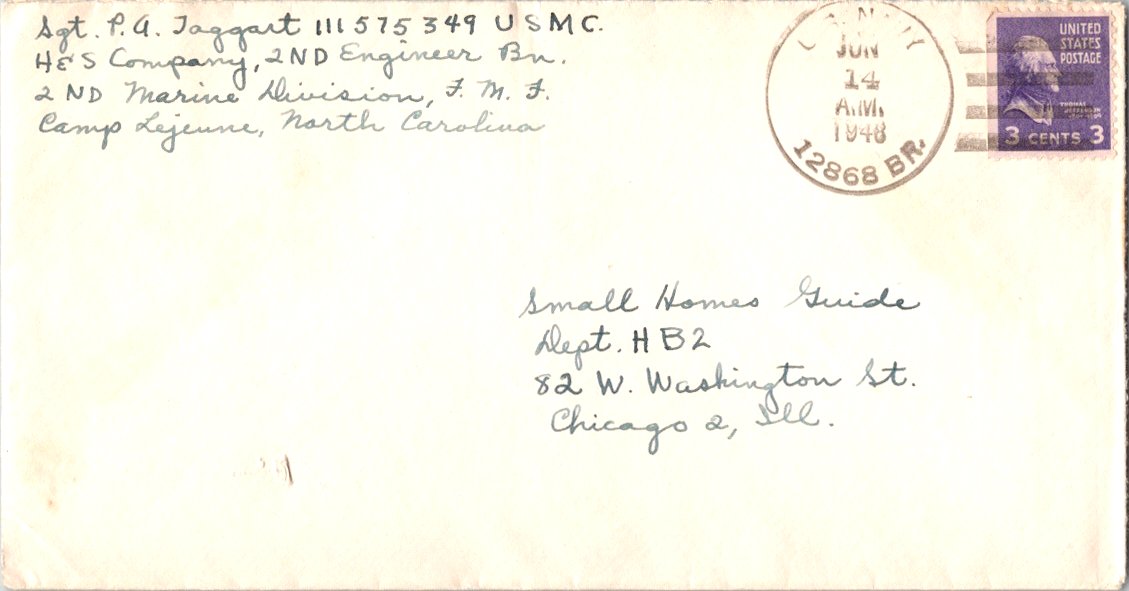 Sgt. P. A. Taggart 111575349 USMC.
H&S Company, 2ND Engineer Bn.
2ND Marine Division, F. M. F.
Camp Lejeune, North Carolina
JUN
14
A.M.
1948
12868 BR.
UNITED
STATES
POSTAGE
3 CENTS 3
Small Homes Guide
Dept. HB2
82 W. Washington St.
Chicago 2, Ill.